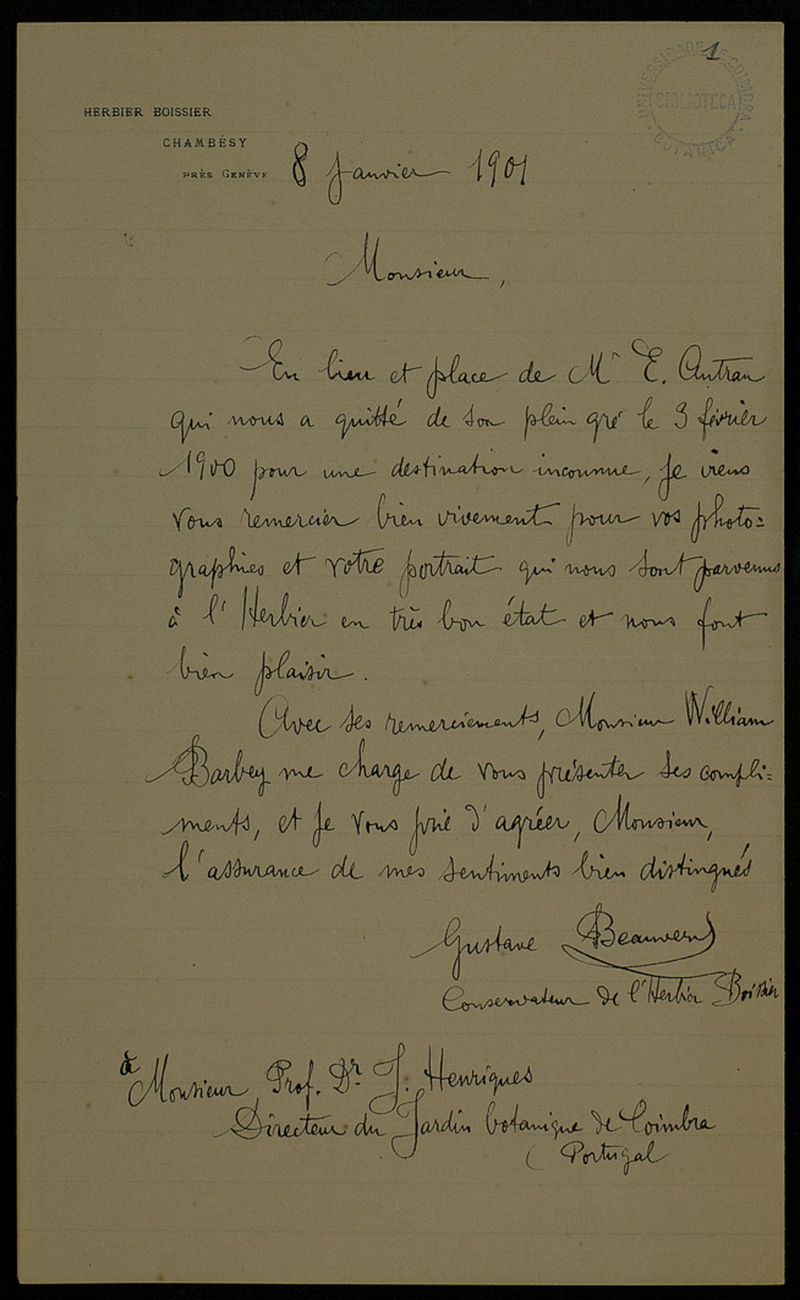 1
UNIVERSIDADE DE COIMBRA
BIBLIOTECA
BOTANICA
HERBIER BOISSIER
CHAMBÉSY
PRÈS GENÈVE
8 Janvier 1901
Monsieur,
En lieu et place de Mr E. Autran
qui nous a quitté de son plein gré le 3 février
1900 pour une destination inconnue, je viens
vous remercier bien vivement pour vos photo=
graphies et votre portrait qui nous sont parvenus
à l'Herbier en très bon état et nous font
bien plaisir.
Avec ses remerciements, Monsieur William
Barbey me charge de vous présenter ses compli=
ments, et je vous prie d'agréer, Monsieur,
l'assurance de mes sentiments bien distingués
Gustave Beauverd
Conservateur de l'Herbier Boissier
à Monsieur Prof. Dr. J. Henriques
Directeur du Jardin botanique de Coimbra
(Portugal